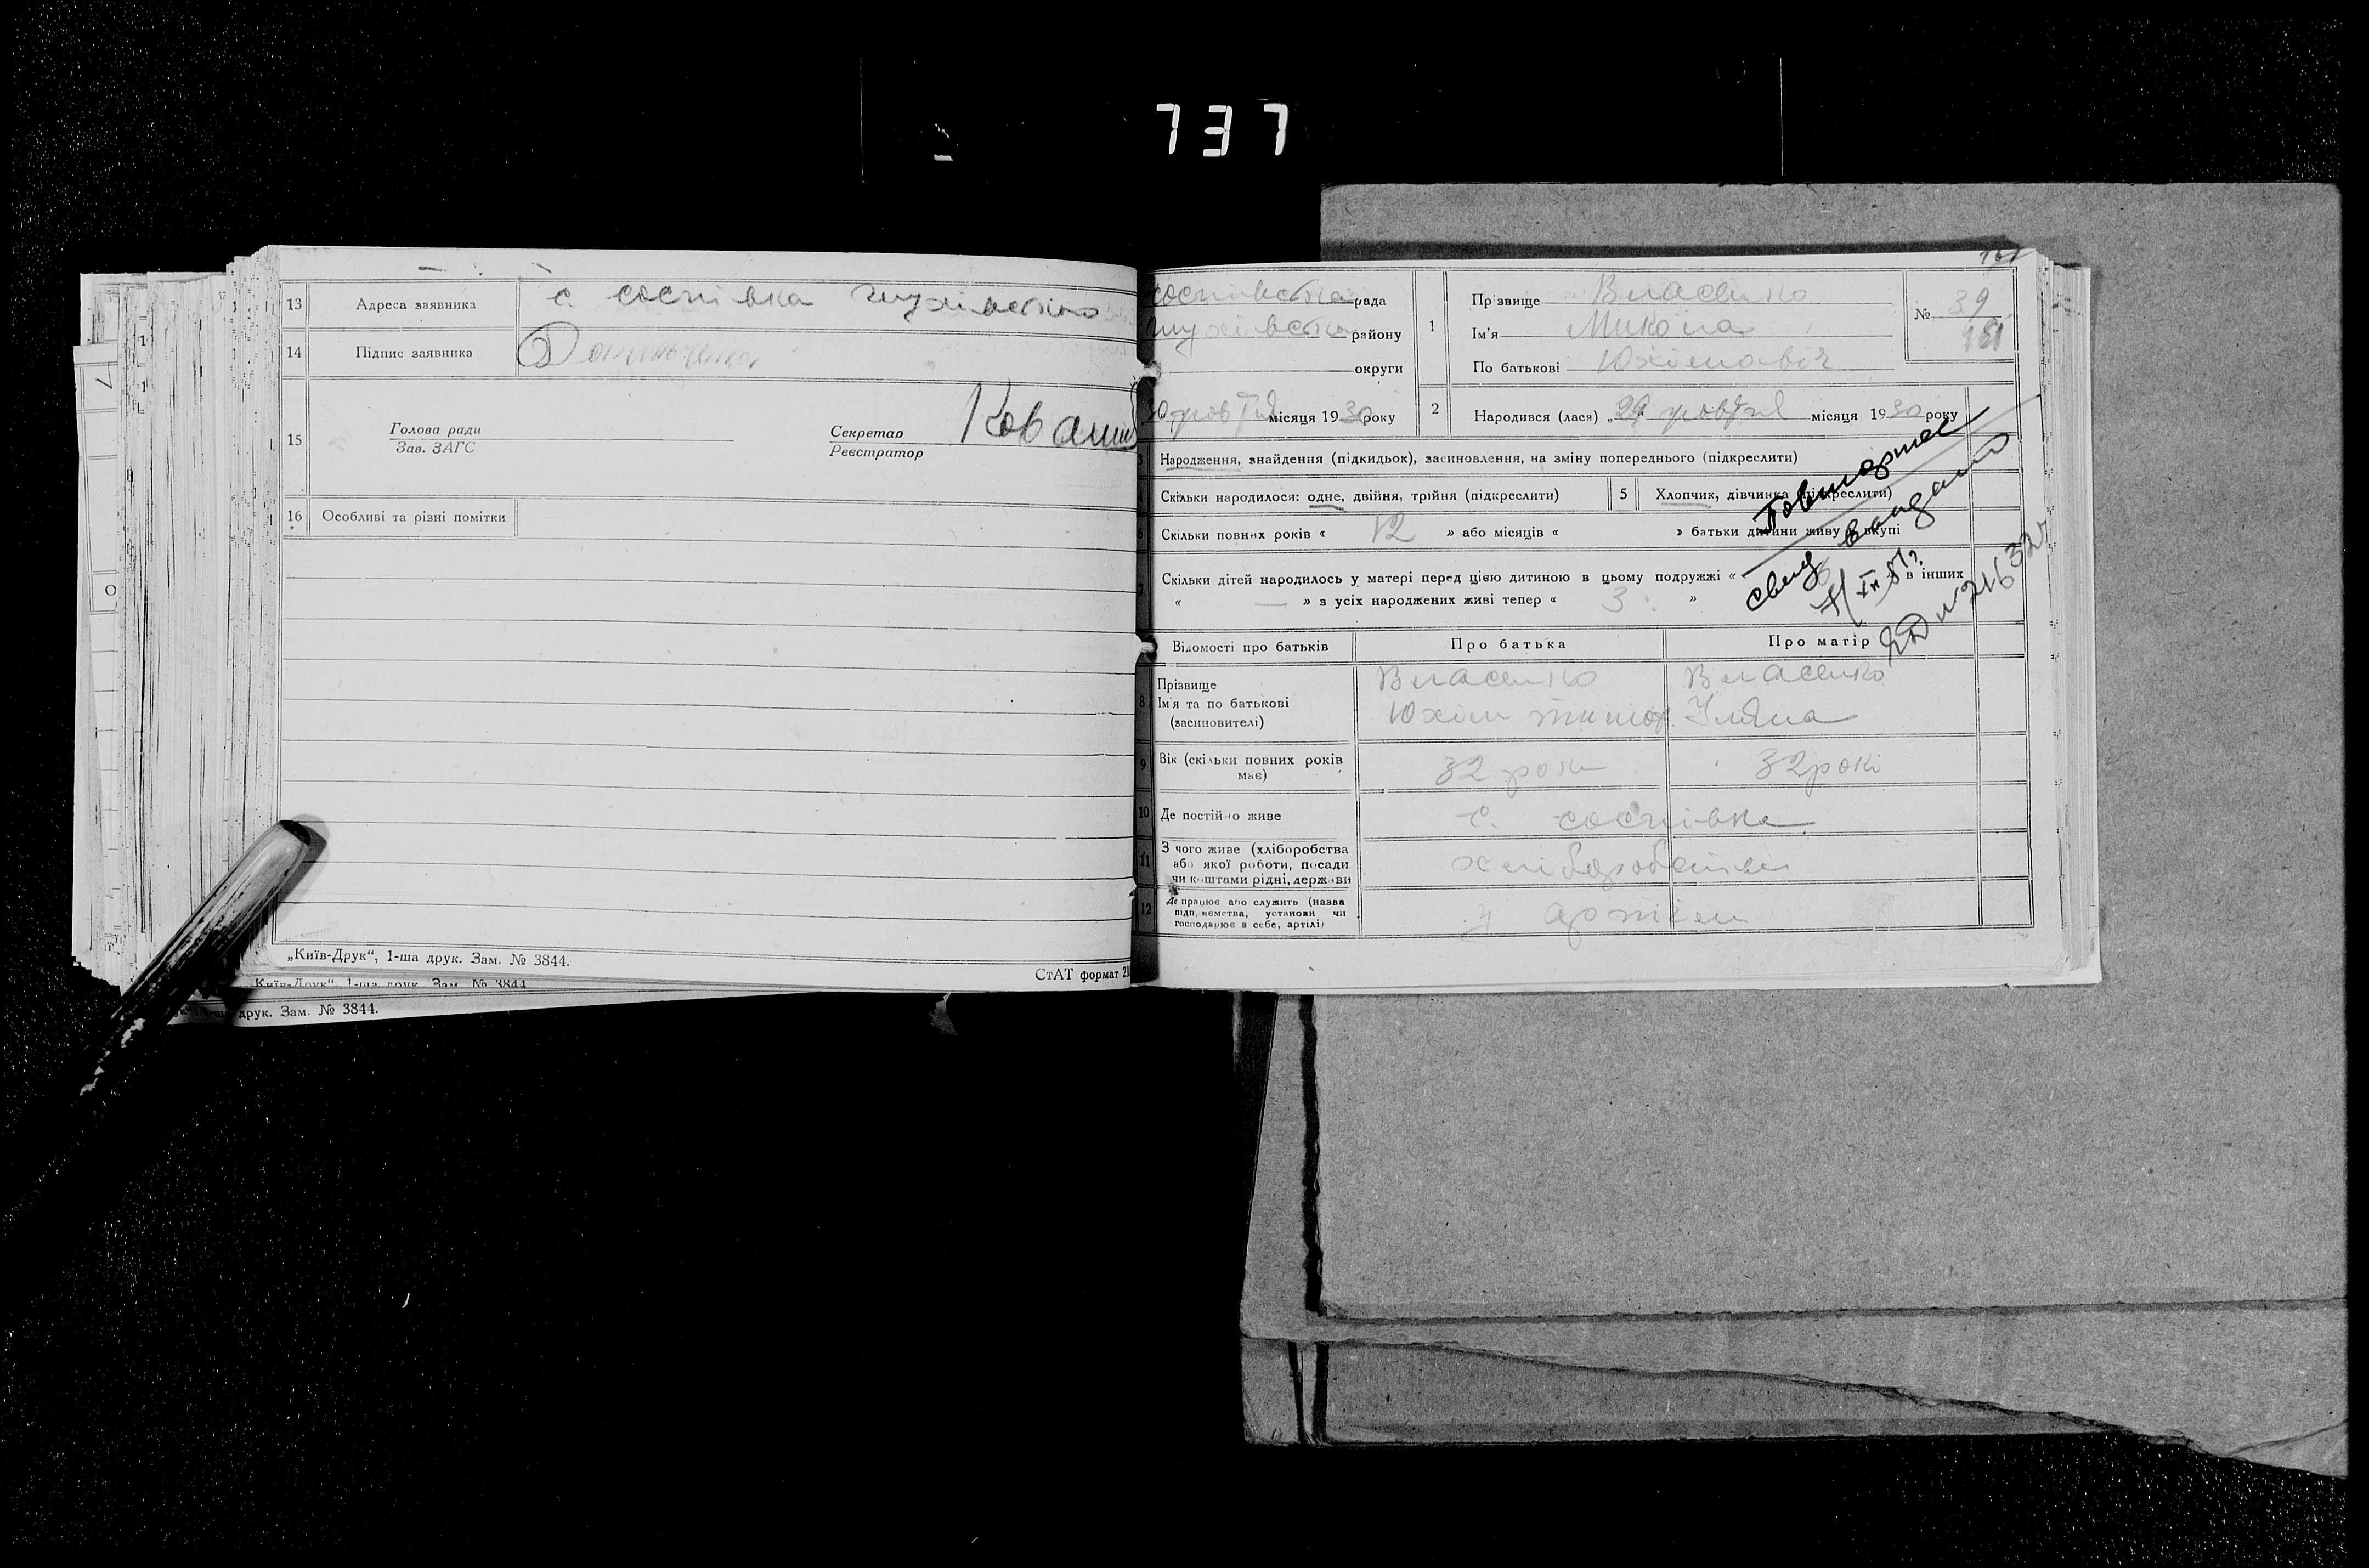 737
13 Адреса заявника с. соснівка глухівского
14 Підпис заявника
15 Голова ради
Зав. ЗАГС
Секретар
Реєстратор
16 Особливі та різні помітки
„Київ-Друк“, 1-ша друк. Зам. № 3844.
СтАТ формат
Київ-Друк“, 1-ша друк. Зам. № 3844
друк. Зам. № 3844.
соснівська рада
глухівська району
округи
30 жовтня місяця 1930 року
1 Прізвище Власенко
Ім’я Микола
По батькові Юхімовіч
№ 39
161
2 Народився (лася) „29 жовтня місяця 1930 року
3 Народження, знайдення (підкидьок), засиновлення, на зміну попереднього (підкреслити)
4 Скільки народилося: одне, двійня, трійня (підкреслити) 5 Хлопчик, дівчинка (підкреслити)
6 Скільки повних років « 12 » або місяців « » батьки дитини живу вкупі
7 Скільки дітей народилось у матері перед цією дитиною в цьому подружжі « » в інших
« — » з усіх народжених живі тепер « 3 »
Повторное
свид выдано
Відомості про батьків Про батька Про матір
8 Прізвище Власенко Власенко
Ім’я та по батькові Юхім тимоф. Уляна
(засиновителі)
9 Вік (скільки повних років має) 32 роки 32 рокі
10 Де постійно живе с. соснівка
11 З чого живе (хліборобства
або якої роботи, посади
чи коштами рідні, держави
хліборобства
12 Де працює або служить (назва
підприємства, установи чи
господарює в себе, артілі)
у артіли